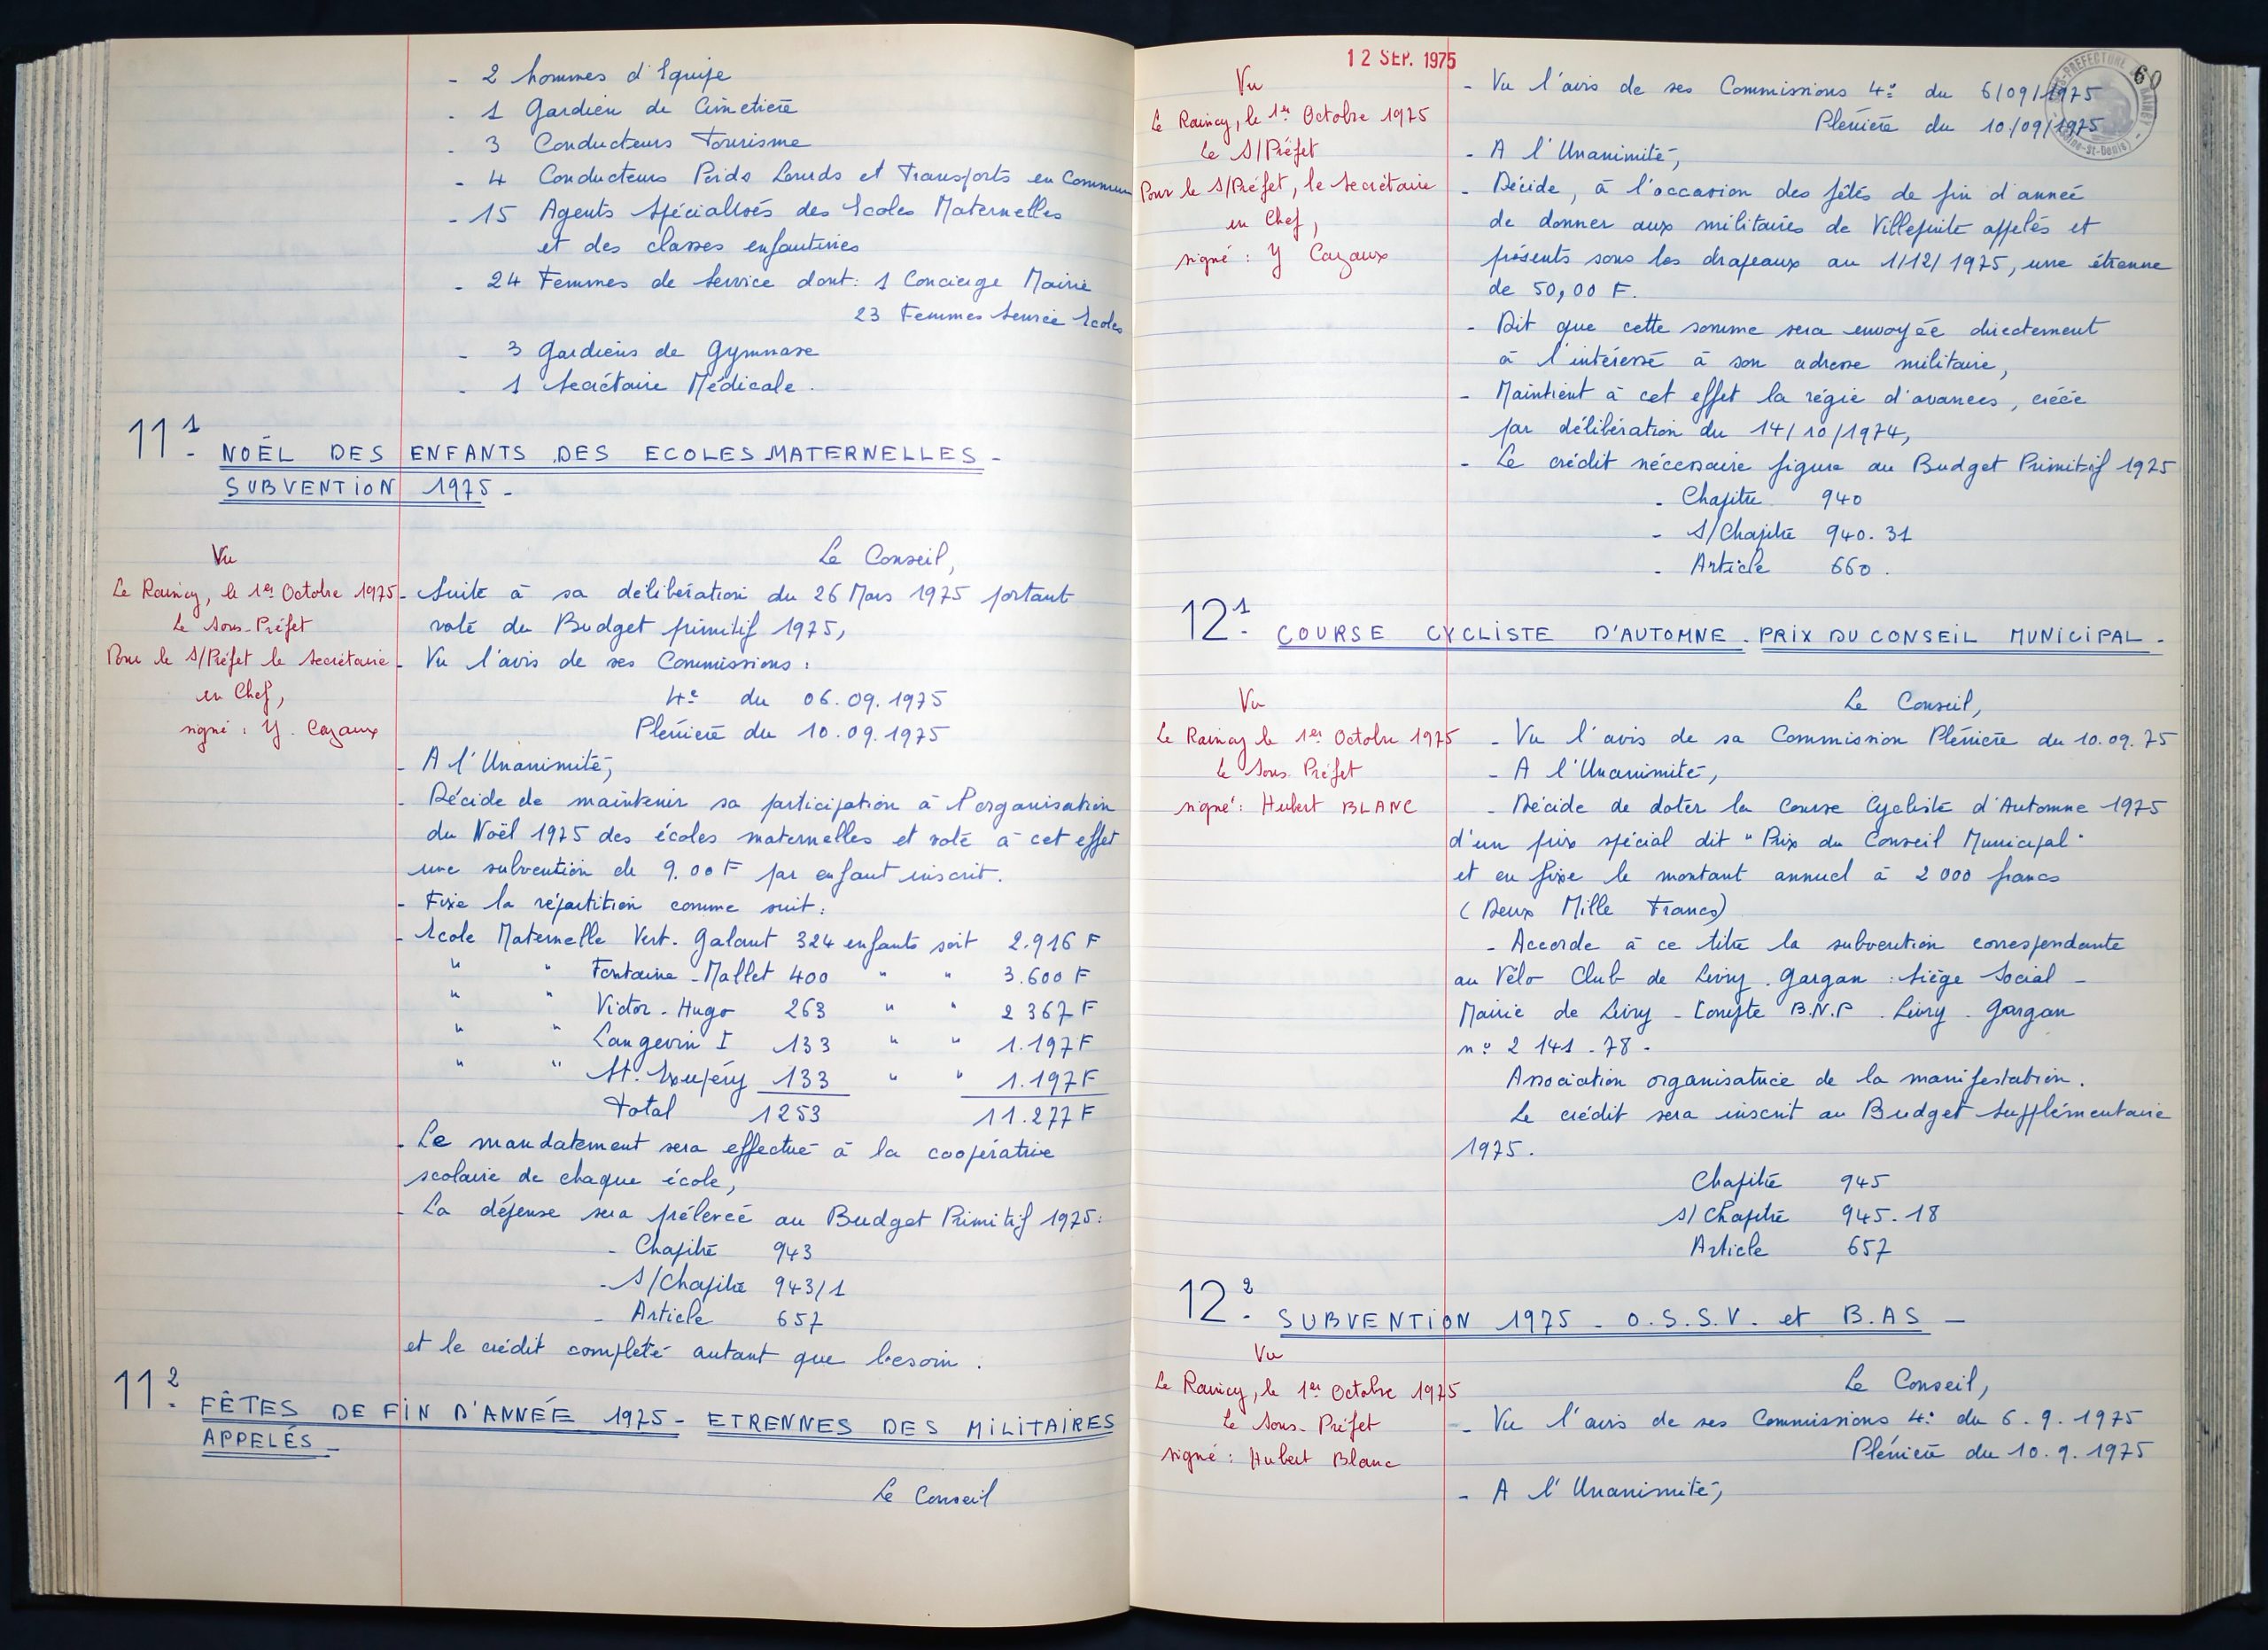 - 2 hommes d'Equipe
- 1 Gardien de Cimetière
- 3 Conducteurs Tourisme
- 4 Conducteurs Poids Lourds et Transports en Commun
- 15 Agents Spécialisés des Ecoles Maternelles
et des classes enfantines
- 24 Femmes de Service dont : 1 Concierge Mairie
23 Femmes Service Ecoles
- 3 Gardiens de Gymnase
- 1 Secrétaire Médicale.
11¹- NOËL DES ENFANTS DES ECOLES MATERNELLES -
SUBVENTION 1975 -
Vu
Le Raincy, le 1er Octobre 1975
Le Sous-Préfet
Pour le S/Préfet le Secrétaire
en Chef,
signé : Y. Cazaux
Le Conseil,
- Suite à sa délibération du 26 Mars 1975 portant
vote du Budget primitif 1975,
- Vu l'avis de ses Commissions :
4e du 06.09.1975
Plénière du 10.09.1975
- A l'Unanimité,
- Décide de maintenir sa participation à l'organisation
du Noël 1975 des écoles maternelles et vote à cet effet
une subvention de 9.00 F par enfant inscrit.
- Fixe la répartition comme suit :
- Ecole Maternelle Vert-Galant 324 enfants soit 2.916 F
" " Fontaine-Mallet 400 " " 3.600 F
" " Victor-Hugo 263 " " 2 367 F
" " Langevin I 133 " " 1.197 F
" " St. Exupéry 133 " " 1.197 F
Total 1253 11.277 F
- Le mandatement sera effectué à la coopérative
scolaire de chaque école,
- La dépense sera prélevée au Budget Primitif 1975 :
- Chapitre 943
- S/Chapitre 943/1
- Article 657
et le crédit complété autant que besoin.
11²- FÊTES DE FIN D'ANNÉE 1975 - ETRENNES DES MILITAIRES
APPELÉS -
Le Conseil
12 SEP. 1975
60
SOUS-PREFECTURE RAINCY (Seine-St-Denis)
Vu
Le Raincy, le 1er Octobre 1975
Le S/Préfet
Pour le S/Préfet, le Secrétaire
en Chef,
signé : Y Cazaux
- Vu l'avis de ses Commissions 4e du 6/09/1975
Plénière du 10/09/1975
- A l'Unanimité,
- Décide, à l'occasion des fêtes de fin d'année
de donner aux militaires de Villepinte appelés et
présents sous les drapeaux au 1/12/1975, une étrenne
de 50,00 F.
- Dit que cette somme sera envoyée directement
à l'intéressé à son adresse militaire,
- Maintient à cet effet la régie d'avances, créée
par délibération du 14/10/1974,
- Le crédit nécessaire figure au Budget Primitif 1975
- Chapitre 940
- S/Chapitre 940.31
- Article 660.
12¹- COURSE CYCLISTE D'AUTOMNE - PRIX DU CONSEIL MUNICIPAL -
Vu
Le Raincy le 1er Octobre 1975
Le Sous-Préfet
signé : Hubert BLANC
Le Conseil,
- Vu l'avis de sa Commission Plénière du 10.09.75
- A l'Unanimité,
- Décide de doter la Course Cycliste d'Automne 1975
d'un prix spécial dit "Prix du Conseil Municipal"
et en fixe le montant annuel à 2 000 francs
(Deux Mille Francs)
- Accorde à ce titre la subvention correspondante
au Vélo Club de Livry-Gargan : Siège Social -
Mairie de Livry - Compte B.N.P. Livry-Gargan
n° 2 141-78-
Association organisatrice de la manifestation.
Le crédit sera inscrit au Budget Supplémentaire
1975.
Chapitre 945
S/Chapitre 945-18
Article 657
12²- SUBVENTION 1975 - O.S.S.V. et B.AS -
Vu
Le Raincy, le 1er Octobre 1975
Le Sous-Préfet
signé : Hubert Blanc
Le Conseil,
- Vu l'avis de ses Commissions 4e du 6.9.1975
Plénière du 10.9.1975
- A l'Unanimité,